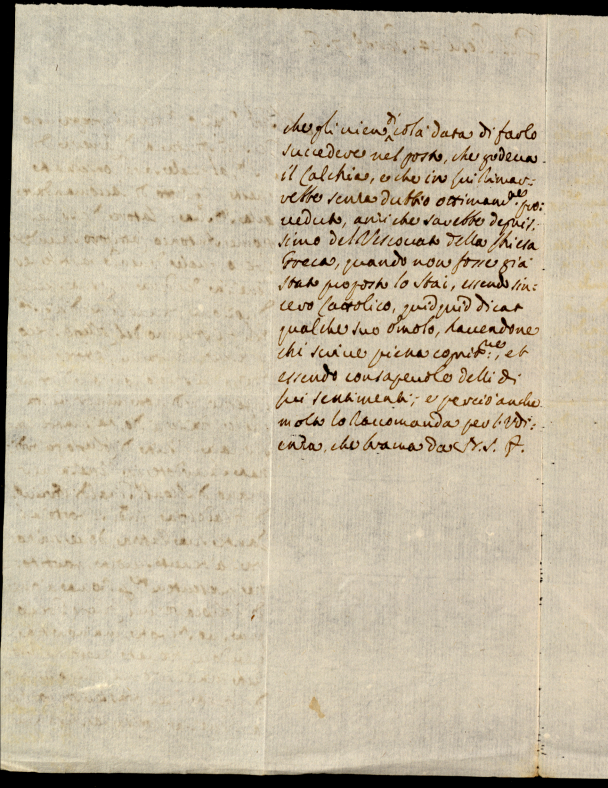 che gli vien di colà data di farlo
succedere nel posto, che godeva
il Calchia, e che in lui rimar=
rebbe senza dubbio ottimam.te pro=
veduto, anzi che sarebbe degnis=
simo del Vescovato della Chiesa
Greca, quando non fosse già
stato proposto lo Stai, essendo sin=
cero Cattolico, quidquid dicat
qualche suo emolo, havendone
chi scrive piena cognit.ne, et
essendo consapevole delli di
lui sentimenti; e perciò anche
molto lo raccomanda per l'Udi=
enza, che brama da N. S.